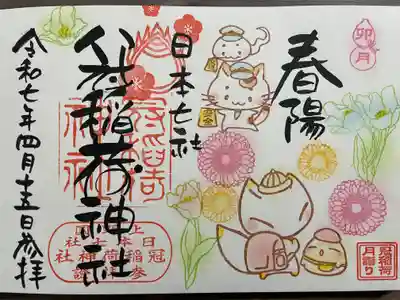 卯月
春陽
日本七社
冠稲荷神社
令和七年四月十五日参拝
日本七社
冠稲荷神社
冠稲荷
月詣り